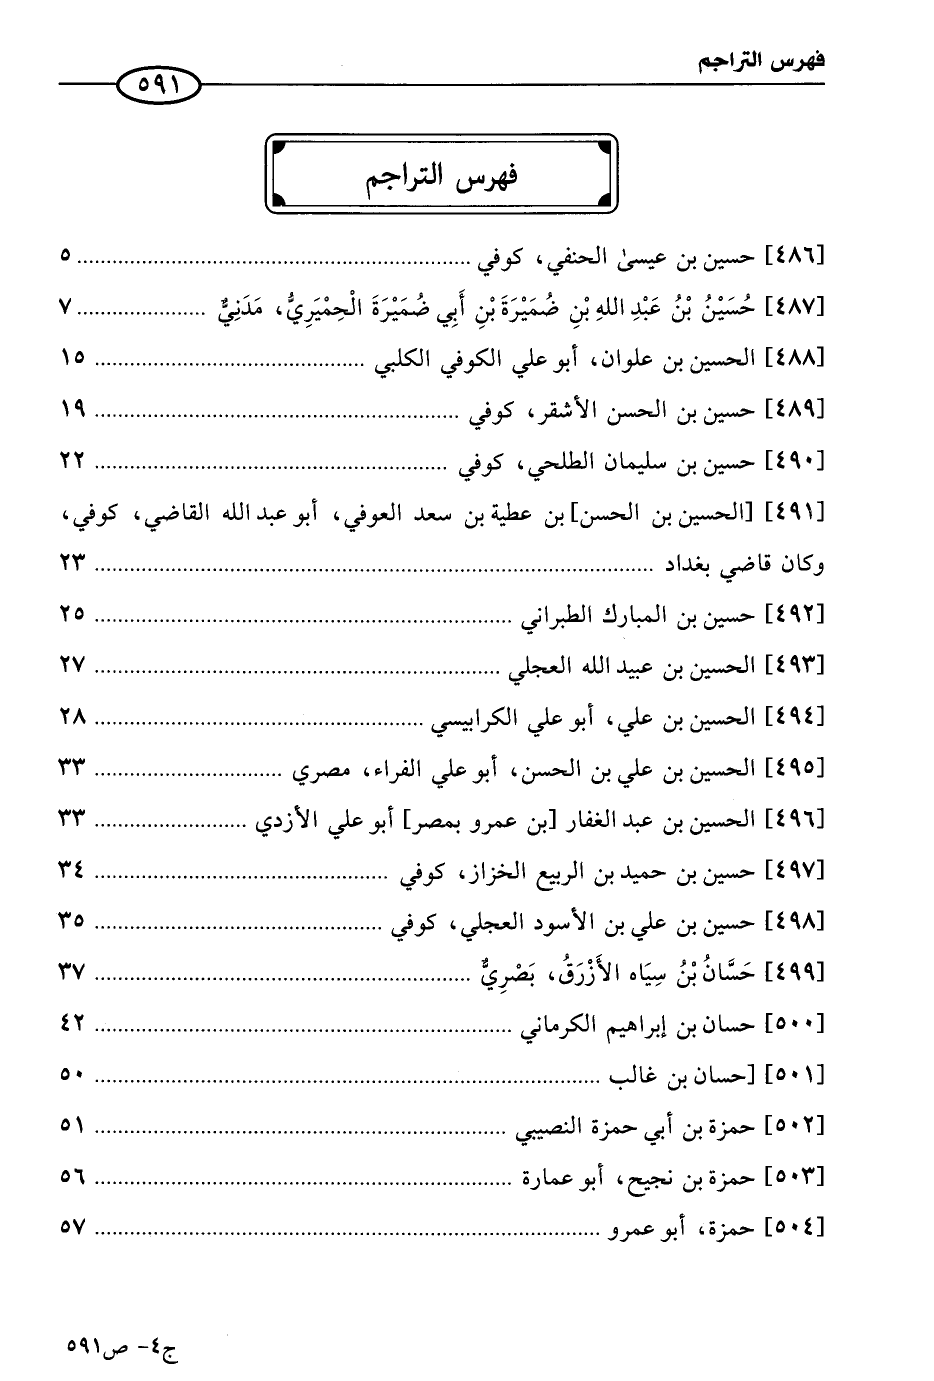 فهرس التراجم
٥٩١
فهرس التراجم
[٤٨٦] حسين بن عيسىٰ الحنفي، كوفي ........ ٥
[٤٨٧] حُسَيْنُ بْنُ عَبْدِ اللهِ بْنِ ضُمَيْرَةَ بْنِ أَبِي ضُمَيْرَةَ الْحِمْيَرِيُّ، مَدَنِيٌّ ........ ٧
[٤٨٨] الحسين بن علوان، أبو علي الكوفي الكلبي ........ ١٥
[٤٨٩] حسين بن الحسن الأشقر، كوفي ........ ١٩
[٤٩٠] حسين بن سليمان الطلحي، كوفي ........ ٢٢
[٤٩١] [الحسين بن الحسن] بن عطية بن سعد العوفي، أبو عبد الله القاضي، كوفي،
وكان قاضي بغداد ........ ٢٣
[٤٩٢] حسين بن المبارك الطبراني ........ ٢٥
[٤٩٣] الحسين بن عبيد الله العجلي ........ ٢٧
[٤٩٤] الحسين بن علي، أبو علي الكرابيسي ........ ٢٨
[٤٩٥] الحسين بن علي بن الحسن، أبو علي الفراء، مصري ........ ٣٣
[٤٩٦] الحسين بن عبد الغفار [بن عمرو بمصر] أبو علي الأزدي ........ ٣٣
[٤٩٧] حسين بن حميد بن الربيع الخزاز، كوفي ........ ٣٤
[٤٩٨] حسين بن علي بن الأسود العجلي، كوفي ........ ٣٥
[٤٩٩] حَسَّانُ بْنُ سِيَاه الأَزْرَقُ، بَصْرِيٌّ ........ ٣٧
[٥٠٠] حسان بن إبراهيم الكرماني ........ ٤٢
[٥٠١] [حسان بن غالب ........ ٥٠
[٥٠٢] حمزة بن أبي حمزة النصيبي ........ ٥١
[٥٠٣] حمزة بن نجيح، أبو عمارة ........ ٥٦
[٥٠٤] حمزة، أبو عمرو ........ ٥٧
ج٤- ص٥٩١